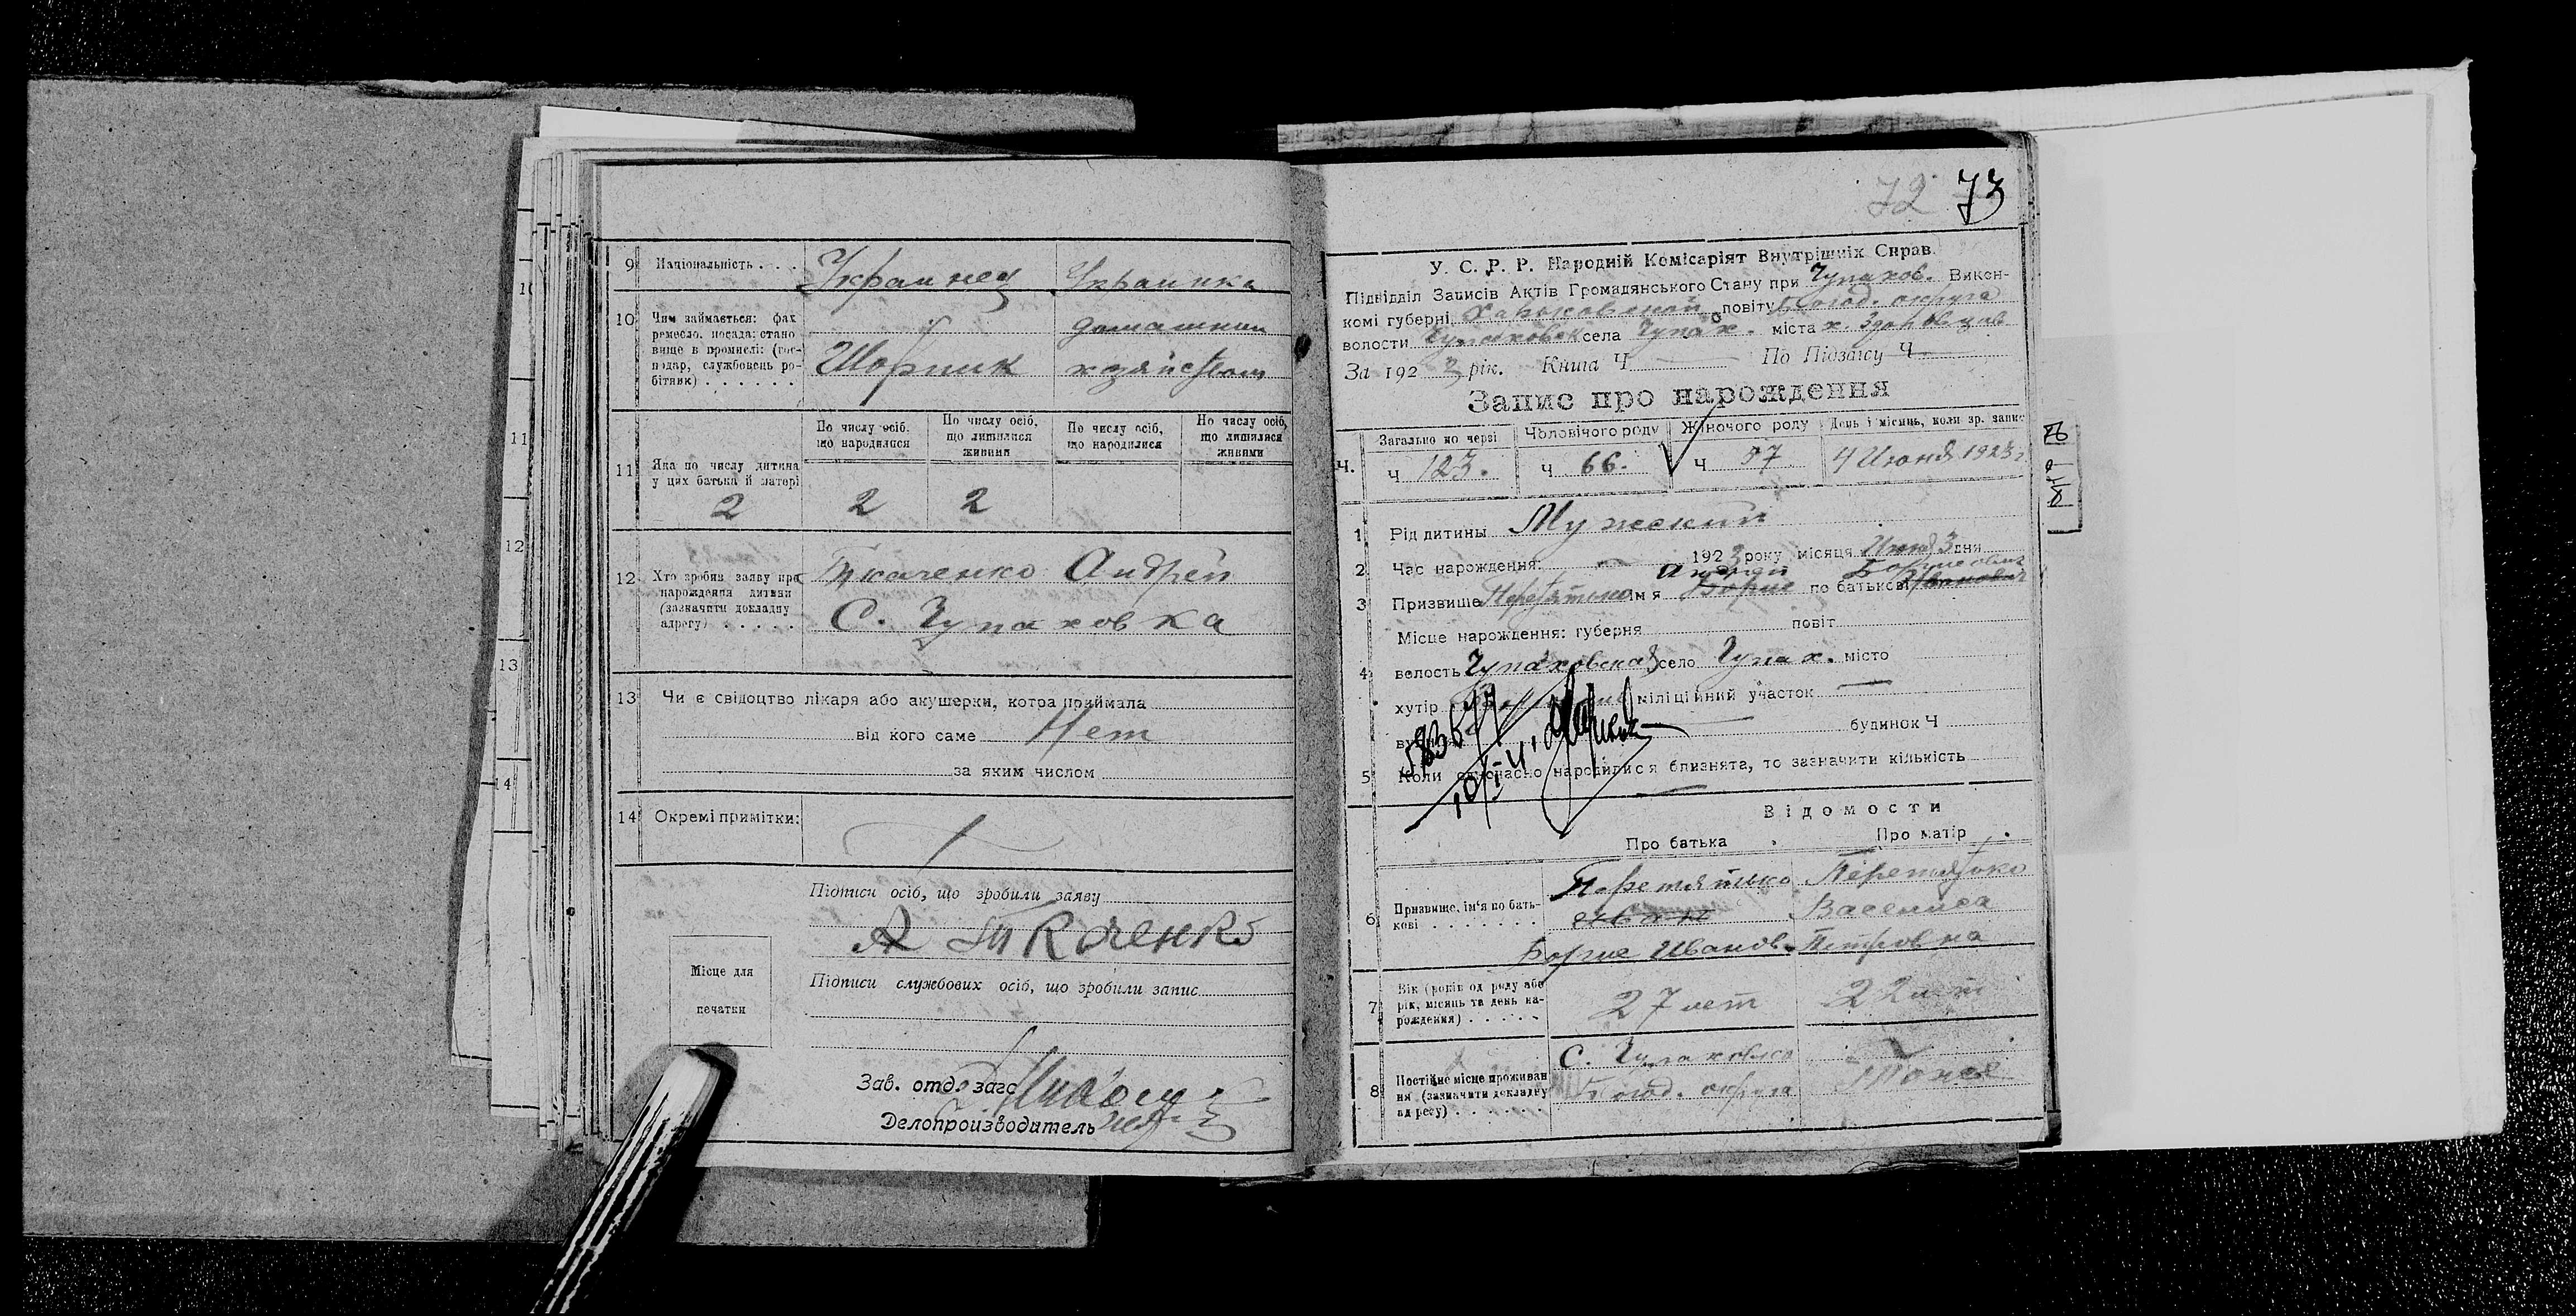 9 Національність . . . Украинец Украинка
10 Чим займається: фах домашним
ремесло, посада: стано-
вище в промислі: (гос- Шорник хозяйством
подар, службовець ро-
бітник) . . . . . .
По числу осіб, що народилися По числу осіб, що лишилися живими По числу осіб, що народилися По числу осіб, що лишилися живими
11 Яка по числу дитина
у цих батька й матері
2 2 2
12 Хто зробив заяву про Ткаченко Андрей
нарождения дитини
(зазначити докладну С. Чупаховка
адресу) . . . . .
13 Чи є свідоцтво лікаря або акушерки, котра приймала
від кого саме Нет
за яким числом
14 Окремі примітки:
Підписи осіб, що зробили заяву
А Ткаченко
Місце для
печатки
Підписи службових осіб, що зробили запис
Зав. отд. загс
Делопроизводитель
72 73
У. С. Р. Р. Народній Комісаріят Внутрішніх Справ.
Підвідділ Записів Актів Громадянського Стану при Чупахов. Викон-
комі губерні Харьковской повіту Богод. округа
волости Чупаховск села Чупах. міста х.
За 1923 рік. Книга Ч По Підзапісу Ч
Запис про народження
Ч. Загально по черзі Чоловічого роду Жіночого роду День і місяць, коли зр. запис
Ч 123. Ч 66. Ч 57 4 Июня 1923 г
1 Рід дитины Мужской
2 Час нарождения: 1923 року місяця Июня 3 дня
Андрей Борисович
3 Призвище Перетятько ім'я Борис по батькові Иванович
Місце нарождения: губерня повіт
4 волость Чупаховская село Чупах. місто
хутір міліційний участок
будинок Ч
5 Коли одночасно народилися близнята, то зазначити кількість
Відомости
Про батька Про матір
6 Призвище, ім'я по бать- Перетятько Перетятько
кові . . . . . . . Иван Василиса
Борис Иванов. Петровна
7 Вік (років од роду або
рік, місяць та день на- 27 лет 22 лет
рождения) . . . . .
8 Постійне місце проживан- С. Чупаховка
ня (зазначити докладну Богод. округа Тоже
адресу) . . . . . .